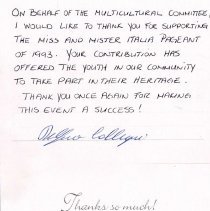 ON BEHALF OF THE MULTICULTURAL COMMITTEE,
I WOULD LIKE TO THANK YOU FOR SUPPORTING
THE MISS AND MISTER ITALIA PAGEANT
OF 1993. YOUR CONTRIBUTION HAS
OFFERED THE YOUTH IN OUR COMMUNITY
TO TAKE PART IN THEIR HERITAGE.
THANK YOU ONCE AGAIN FOR MAKING
THIS EVENT A SUCCESS!
Thanks so much!